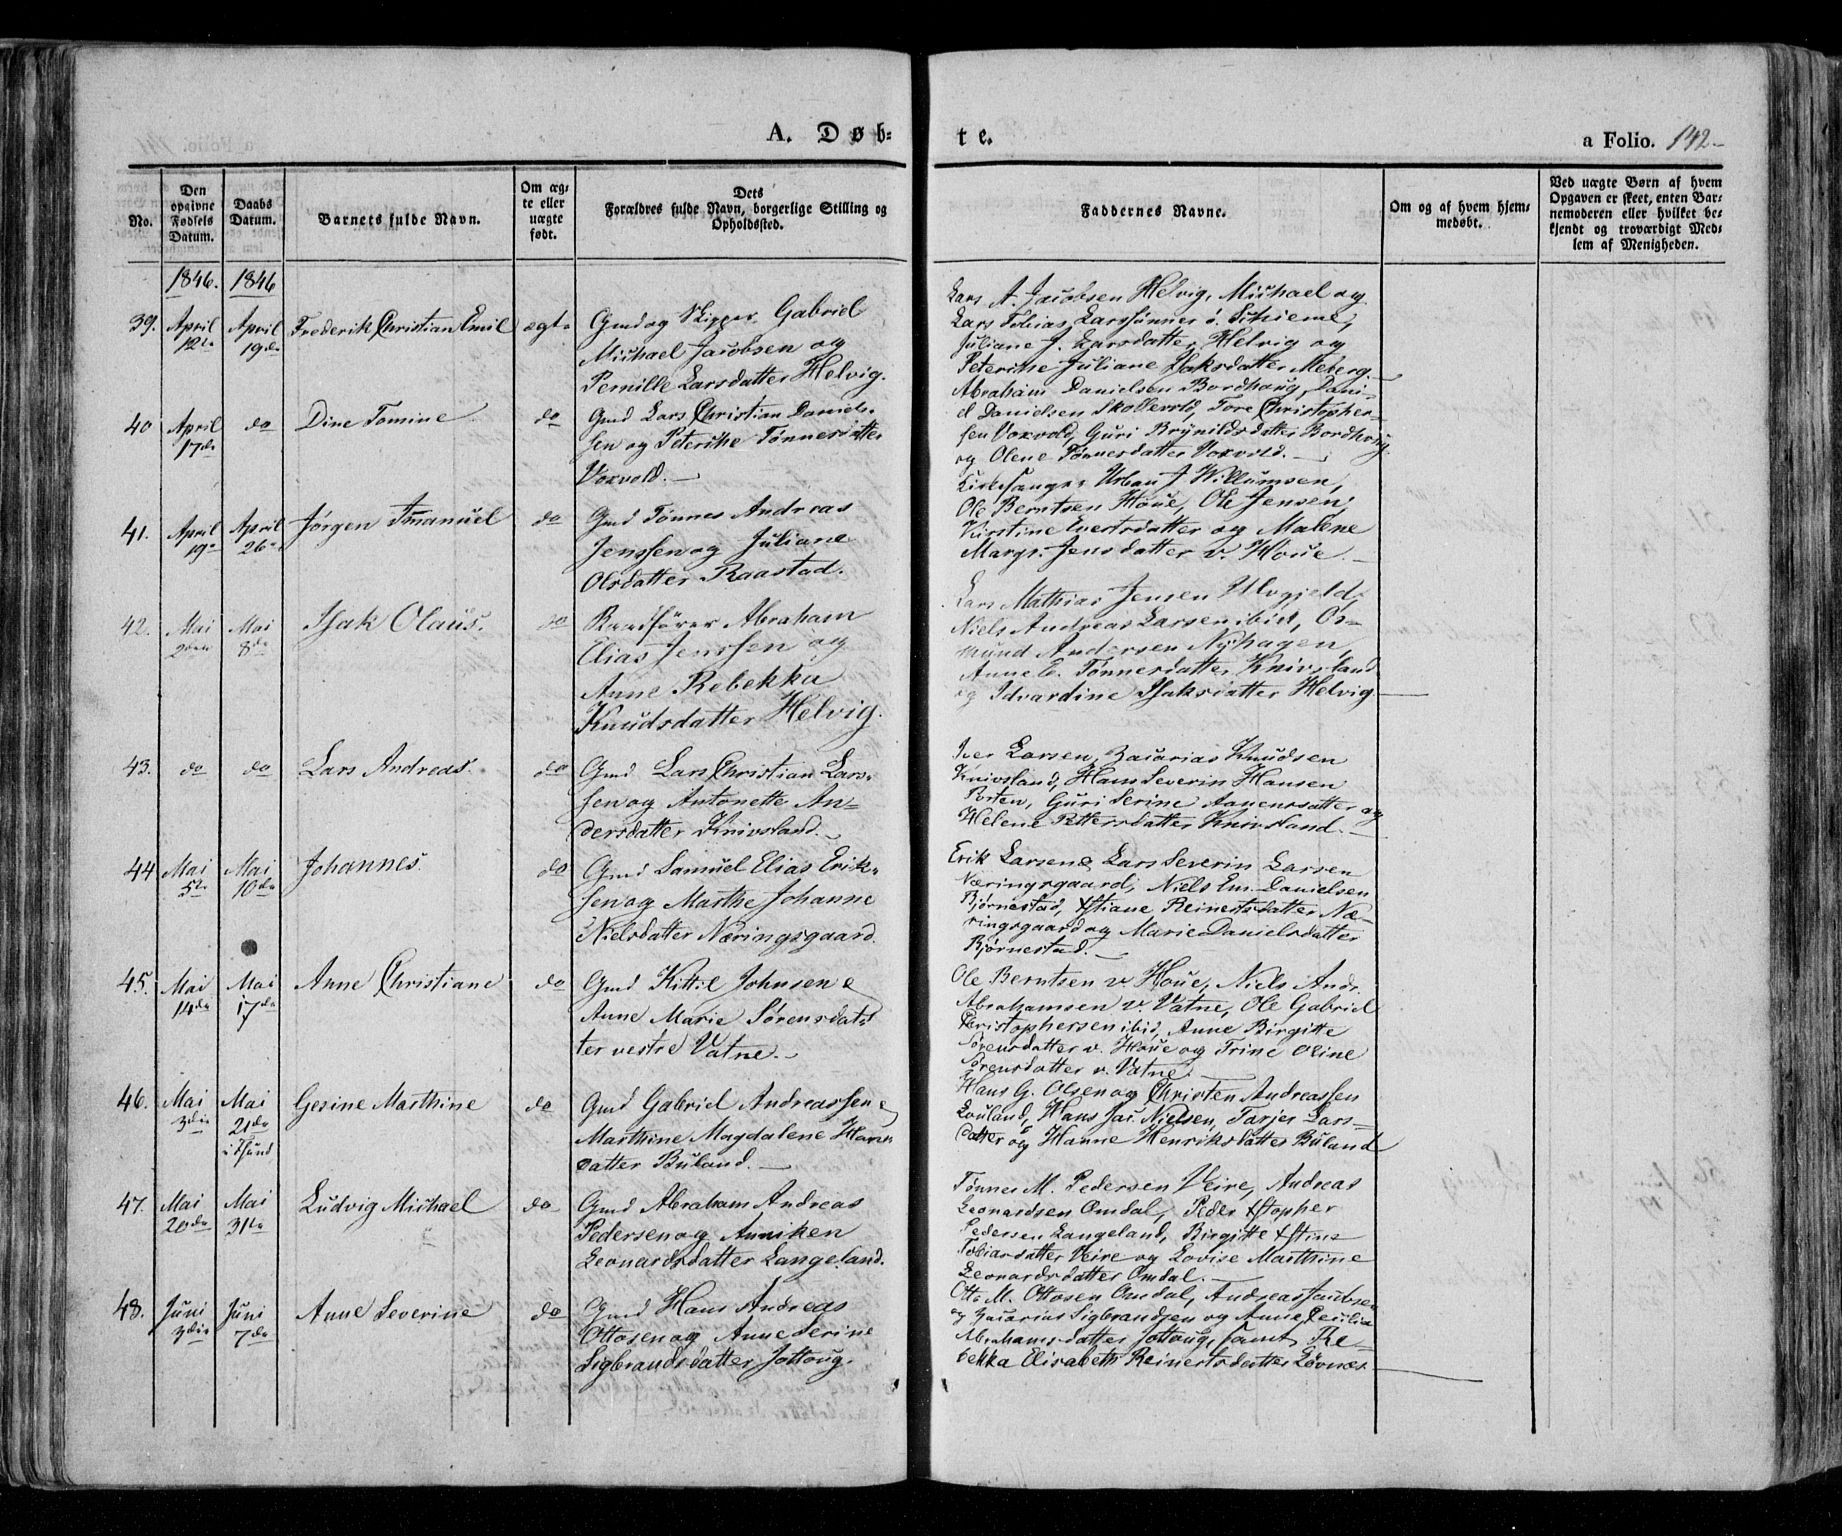 A. Døb-
te.
a Folio. 142-
No.
Den
opgivne
Fødsels
Datum.
Daabs
Datum.
Barnets fulde Navn.
Om æg-
te eller
uægte
født.
Dets
Forældres fulde Navn, borgerlige Stilling og
Opholdssted.
Faddernes Navne.
Om og af hvem hjem-
medøbt.
Ved uægte Børn af hvem
Opgaven er skeet, enten Bar-
nemoderen eller hvilket be-
kjendt og troværdigt Med-
lem af Menigheden.
1846. 1846
39. April 12te April 19de Frederik Christian Emil ægte
Gmd og Skipper Gabriel
Michael Jacobsen og
Pernille Larsdatter Helvig.
Lars A. Jacobsen Helvig, Michael og
Lars Tobias Larssønner ó. Schieme,
Juliane J. Larsdatter Helvig og
Peterike Juliane Isaksdatter Meberg.
40 April 17de do Dine Tomine do
Gmd Lars Christian Daniel-
sen og Peterike Tønnesdatter
Voxvold. —
Abraham Danielsen Bordhaug, Dani-
el Danielsen Skollevold, Tore Christopher-
sen Voxvold, Guri Brynildsdatter Bordhaug
og Olene Tønnesdatter Voxvold. —
41. April 19de April 26de Jørgen Imanuel do
Gmd Tønnes Andreas
Jenssen og Juliane
Olsdatter Raastad.
Kirkesanger Urban J Willumsen,
Ole Berntsen Houe, Ole Jensen,
Kirstine Evertsdatter og Malene
Margr. Jensdatter v. Houe. —
42. Mai 2den Mai 8de Isak Olaus. do
Abraham
Elias Jenssen og
Anne Rebekka
Knudsdatter Helvig.
Lars Mathias Jensen Ulvgjeld,
Niels Andreas Larsen ibid, Os-
mund Andersen Nyhagen,
Anne E. Tønnesdatter Knivsland
og Idvardine Isaksdatter Helvig
43. do do Lars Andreas. do
Gmd Lars Christian Lars-
sen og Antonette An-
dersdatter Knivsland. —
Iver Larsen, Zacarias Knudsen
Knivsland, Hans Severin Hansen
Porten, Guri Serine Aanensdatter og
Helene Pettersdatter Knivsland. —
44 Mai 5te Mai 10de Johannes. do
Gmd Samuel Elias Erik-
sen og Marthe Johanne
Nielsdatter Næringsgaard.
Erik Larsen & Lars Severin Larsen
Næringsgaard, Niels Em. Danielsen
Bjørnestad, Xstiane Reinertsdatter Næ-
ringsgaard og Marie Danielsdatter
Bjørnestad. —
45. Mai 14de Mai 17de Anne Christiane do
Gmd Kittil Johnsen &
Anne Marie Sørensdat-
ter vestre Vatne. —
Ole Berntsen v Houe, Niels Andr.
Abrahamsen v. Vatne, Ole Gabriel
Christophersen ibid, Anne Birgitte
Sørensdatter v. Houe og Trine Oline
Sørensdatter v. Vatne.
46. Mai 3die Mai 21de Gesine Marthine do
Gmd Gabriel Andreassen &
Marthine Magdalene Hans-
datter Buland. —
Hans G. Olsen og Christen Andreassen
Louland, Hans Jac. Nielsen, Tarjer Lars-
datter og Hanne Henriksdatter Buland
47. Mai 20de Mai 31te Ludvig Michael do
Gmd Abraham Andreas
Pedersen og Anniken
Leonardsdatter Langeland.
Tønnes M. Pedersen Veire, Andreas
Leonardsen Omdal, Peder Xstopher
Pedersen Langeland, Birgitte Xstine
Tobiasdatter Veire og Lovise Marthine
Leonardsdatter Omdal. —
48. Juni 3die Juni 7de Anne Severine do
Gmd Hans Andreas
Ottosen og Anne Serine
Sigbrandsdatter Jottoug.
Otto M. Ottosen Omdal, Andreas Jacobsen
og Zacarius Sigbrandsen og Anne Cecilia
Abrahamsdatter Jottoug, samt Re-
bekka Elisabeth Reinertsdatter Løvnæs